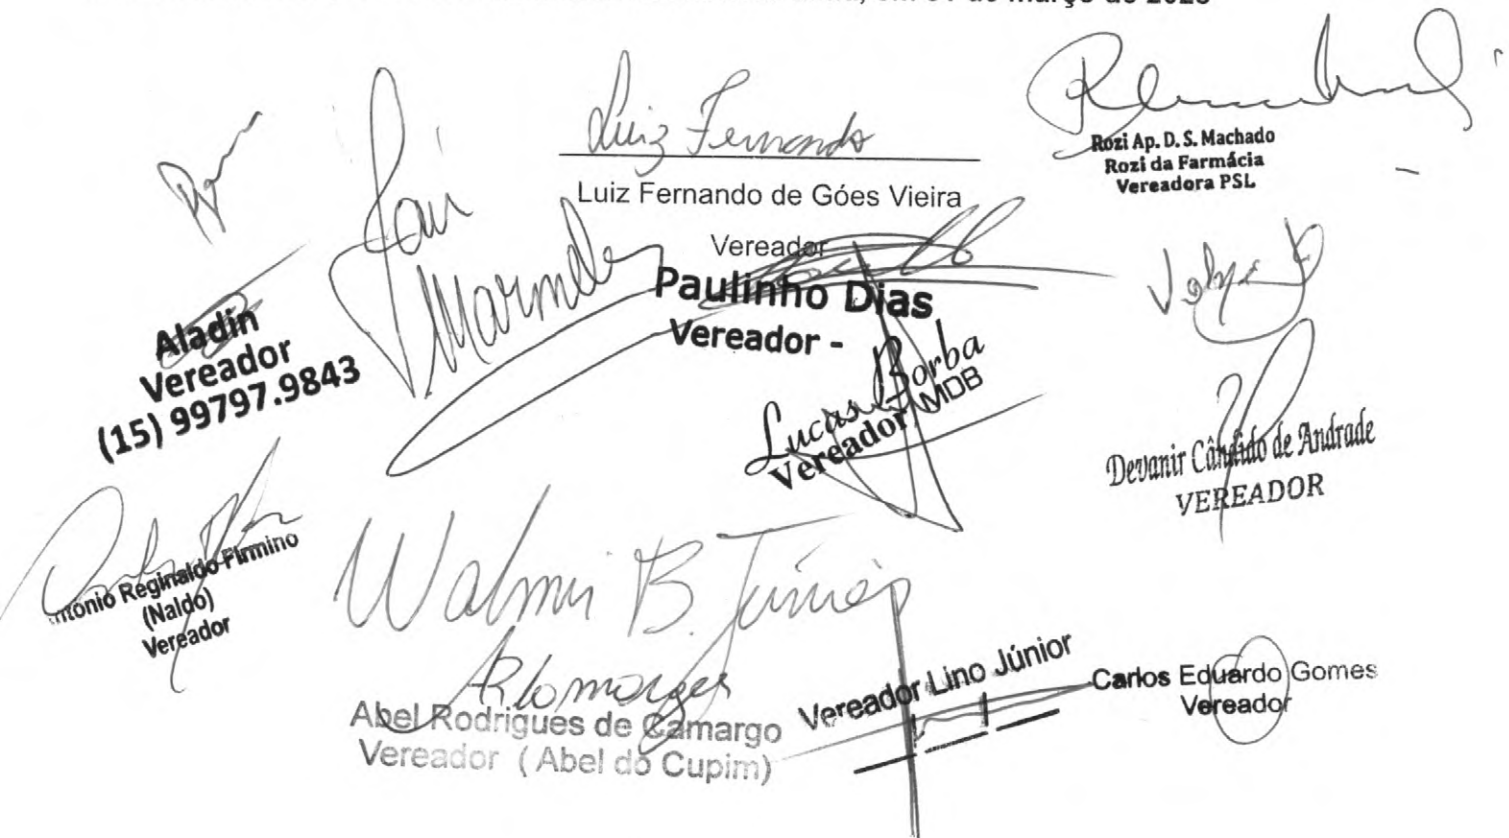 de março de 2023
Luiz Fernando
Luiz Fernando de Góes Vieira
Vereador
Rozi Ap. D. S. Machado
Rozi da Farmácia
Vereadora PSL
Paulinho Dias
Vereador -
Aladin
Vereador
(15) 99797.9843
Lucas Borba
Vereador MDB
Devanir Cândido de Andrade
VEREADOR
Antônio Reginaldo Firmino
(Naldo)
Vereador
Walmir B. Júnior
Abel Rodrigues de Camargo
Vereador ( Abel do Cupim)
Vereador Lino Júnior
Carlos Eduardo Gomes
Vereador